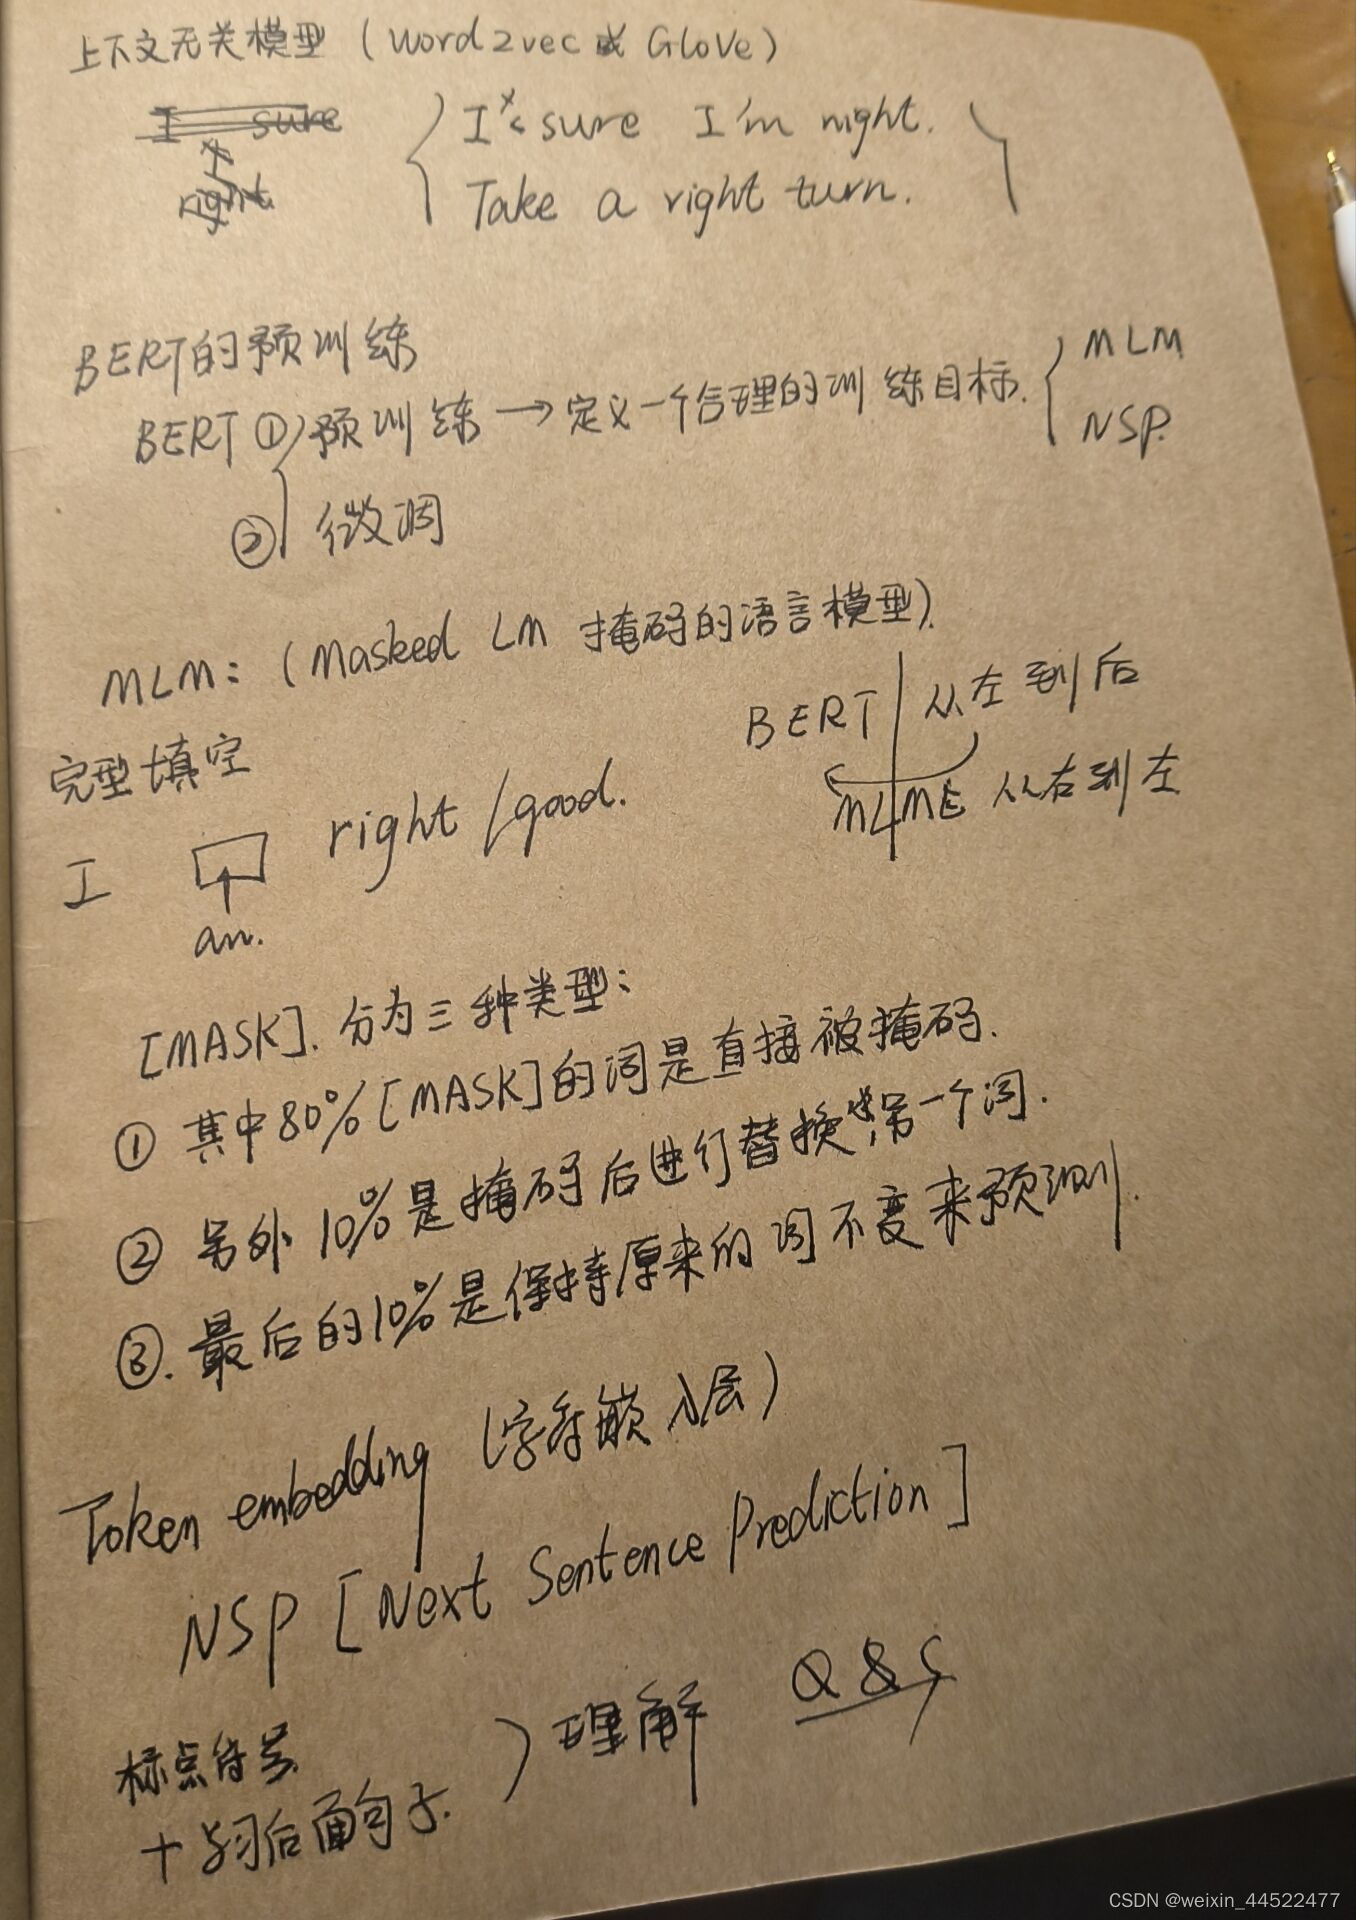 上下文无关模型 (Word2vec或 GloVe)
I sure
right.
I sure I'm right.
Take a right turn.
BERT的预训练
BERT ① 预训练 → 定义一个合理的训练目标. MLM
NSP.
② 微调
MLM: (Masked LM 掩码的语言模型).
BERT 从左到后
完型填空
MLME 从右到左
I right / good.
am.
[MASK]. 分为三种类型:
① 其中80% [MASK]的词是直接被掩码.
② 另外 10%是掩码后进行替换成另一个词.
③. 最后的10%是保持原来的词不变来预测.
Token embedding (字符嵌入层)
NSP [Next Sentence Prediction]
标点符号 理解 Q &
十 后面句子.
CSDN @weixin_44522477